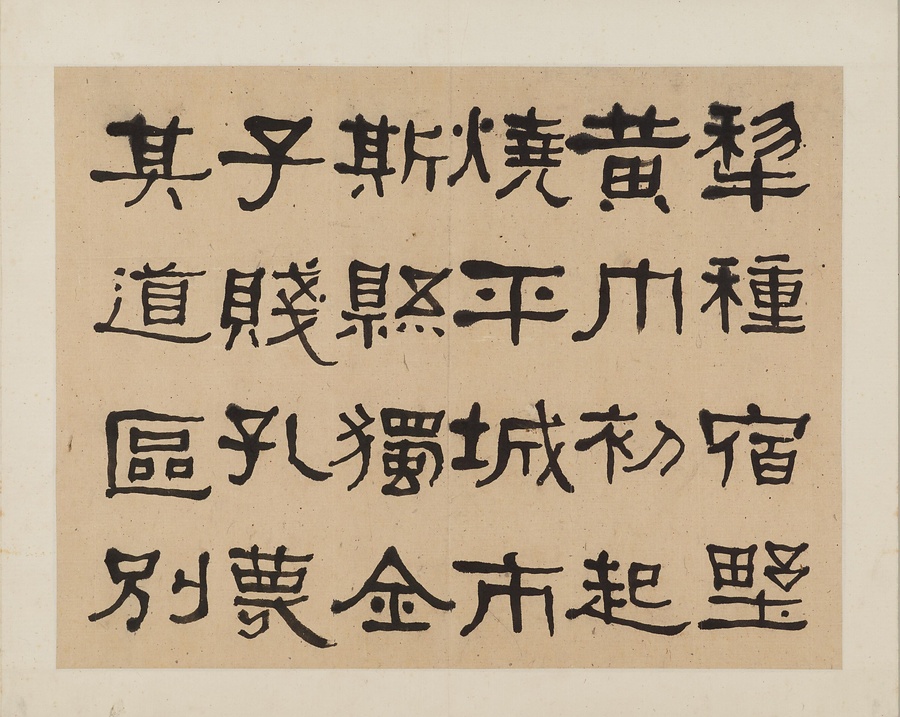 犂種宿墅
黃巾初起
燒平城市
斯縣獨全
子賤孔蔑
其道區別